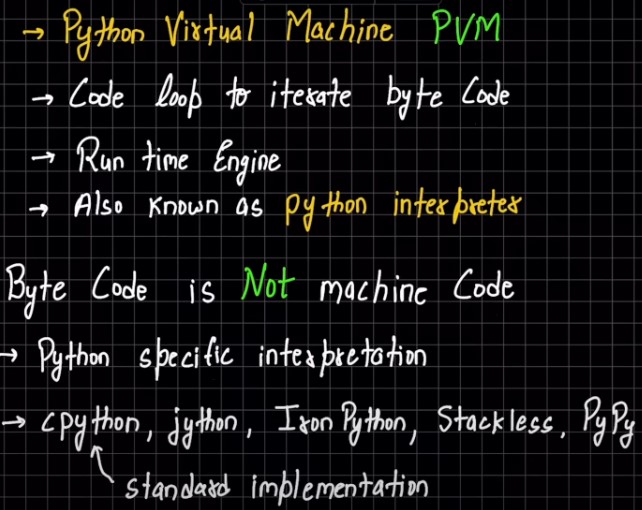 → Python Virtual Machine PVM
→ Code loop to iterate byte Code
→ Run time Engine
→ Also Known as python interpreter
Byte Code is Not machine Code
→ Python specific interpretation
→ cpython, jython, Iron Python, Stackless, PyPy
standard implementation